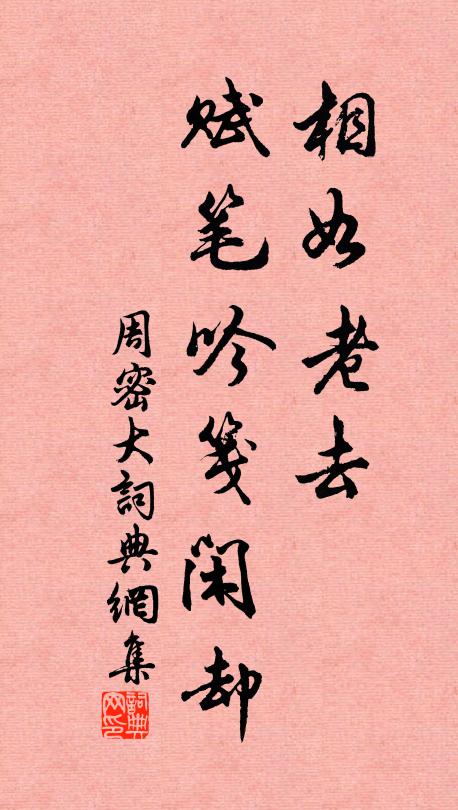 相如老去
赋笔吟笺闲却
周密大詞典網集
詞典网印